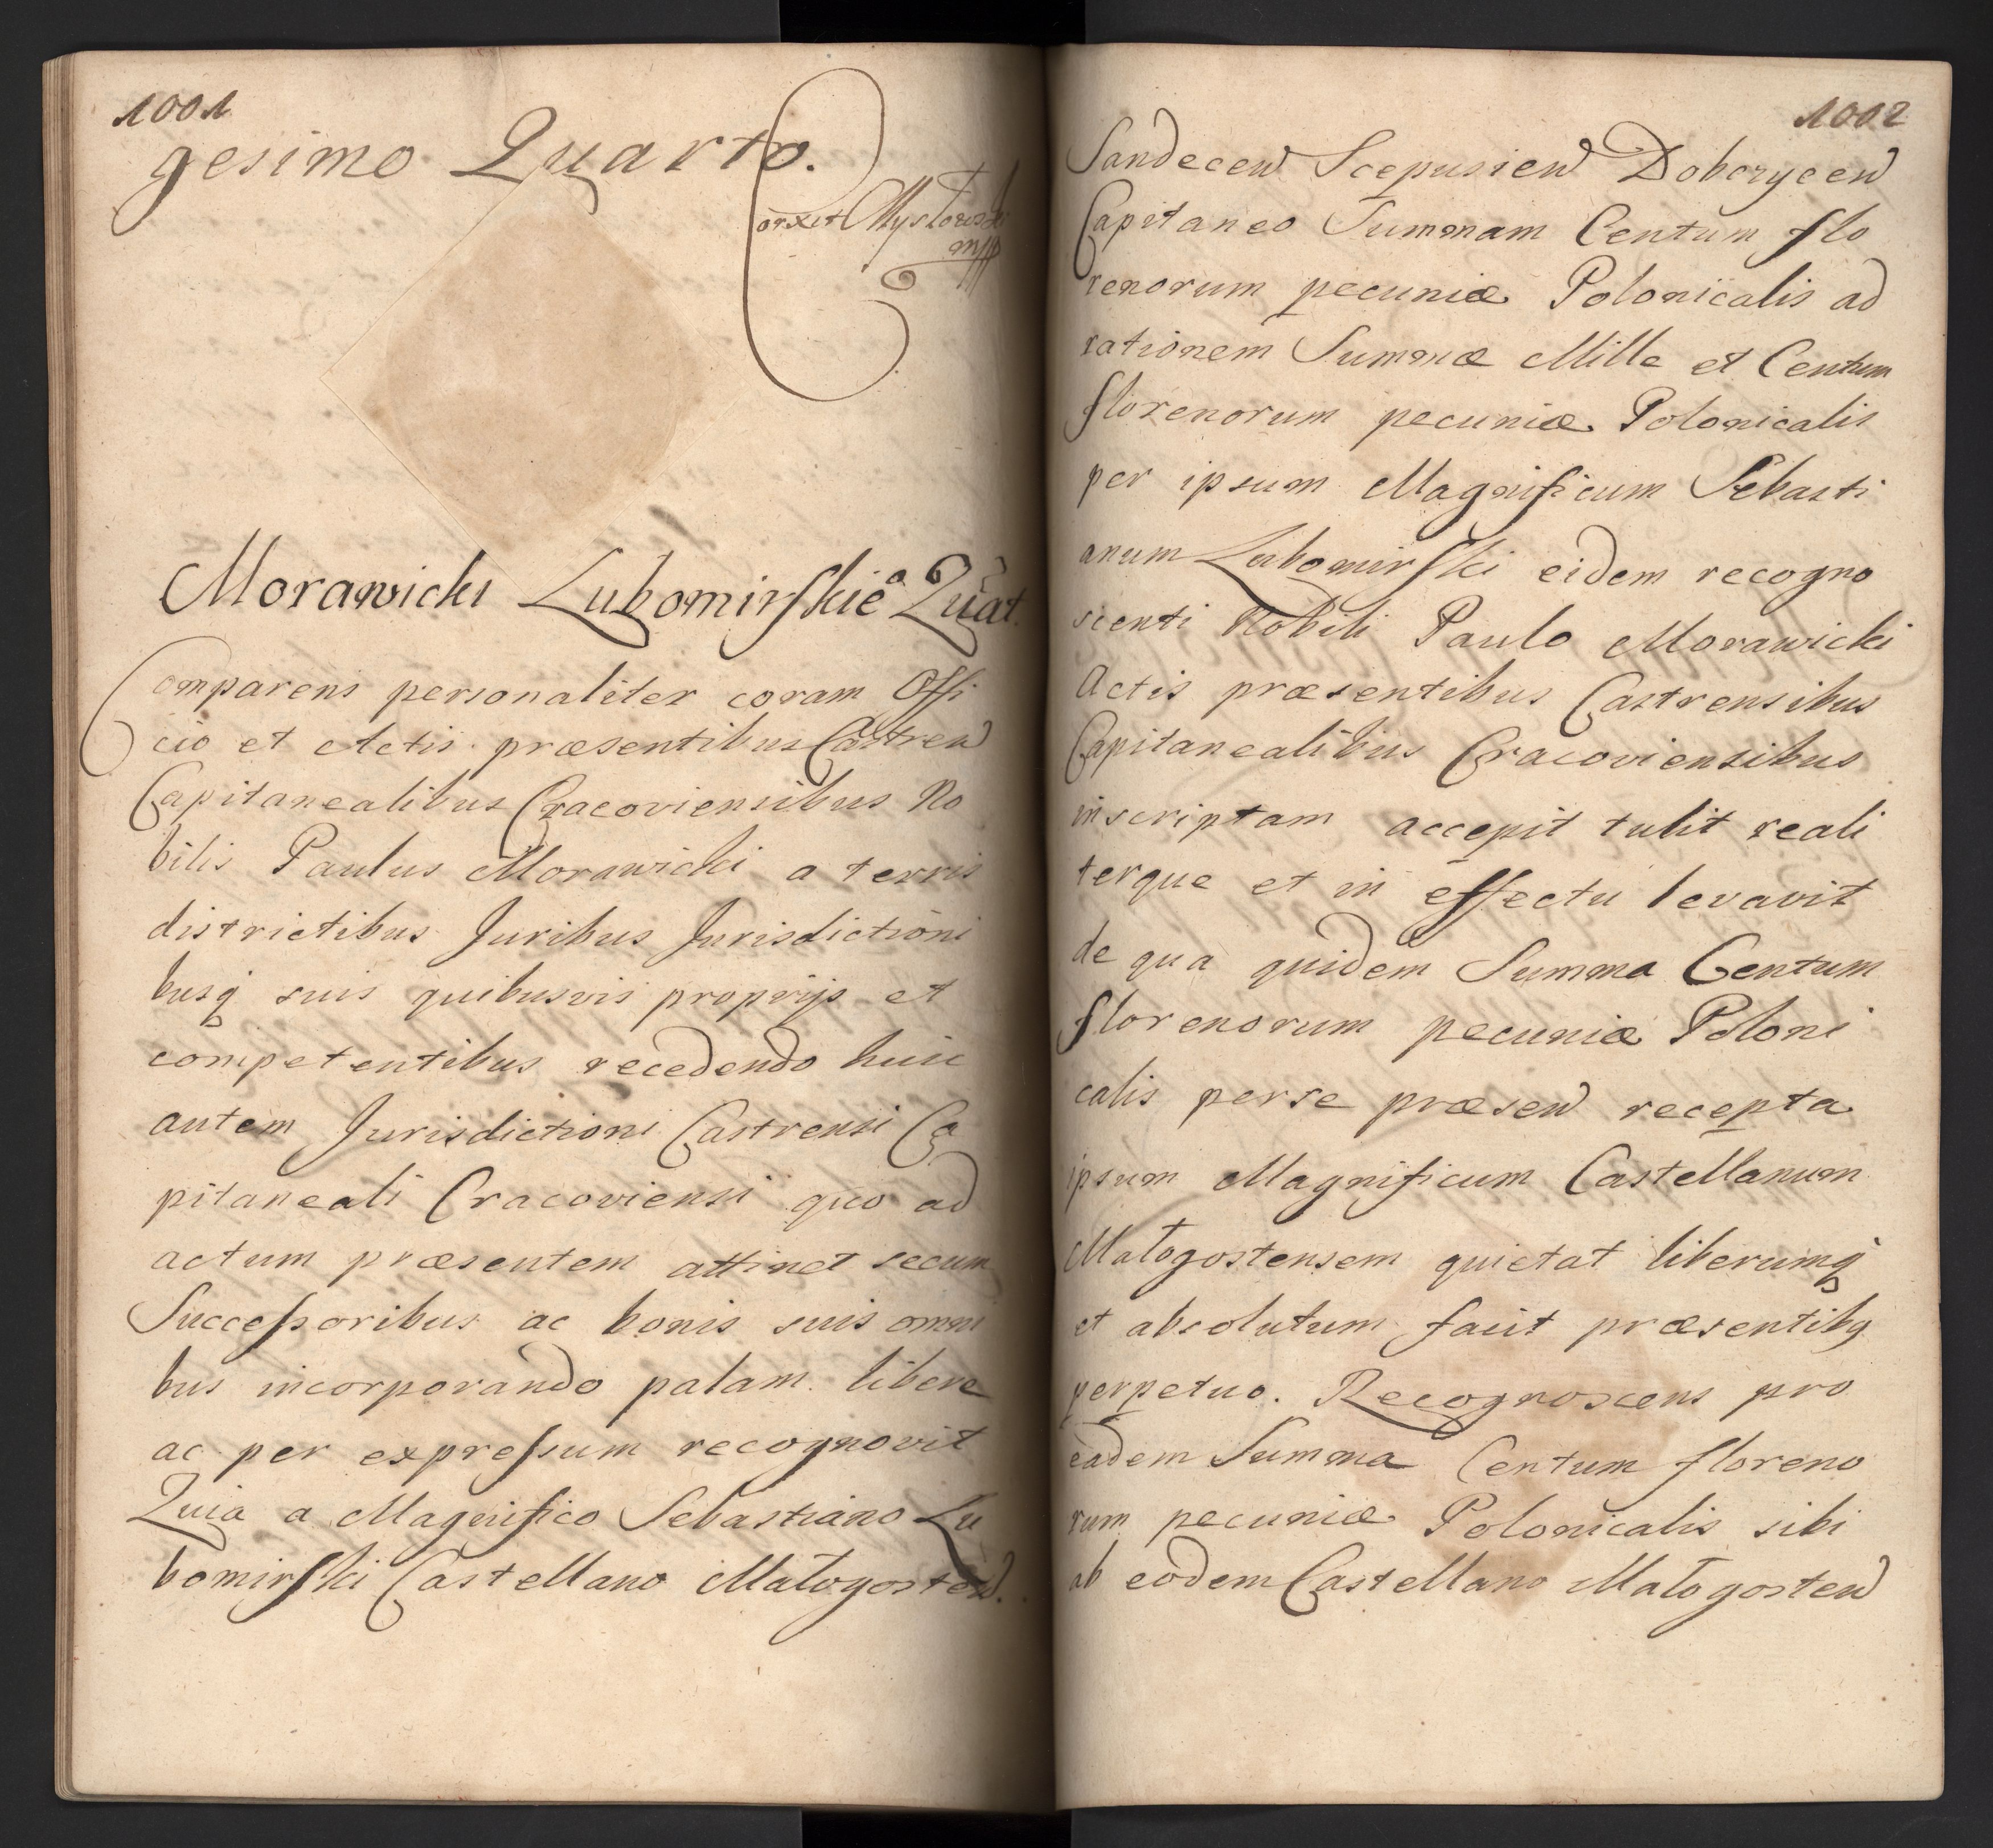 1001
gesimo Quarto.
Morawicki Lubomirskie Quat
Comparens personaliter coram Offi
cio et Actis præsentibus Castren
Capitanealibus Cracoviensibus No
bilis Paulus Morawicki a terris
districtibus Juribus Jurisdictioni
busq suis quibusvis proprijs et
competentibus recedendo huic
autem Jurisdictioni Castrensi Ca
pitaneali Cracoviensi quo ad
actum præsentem attinet secum
Successoribus ac bonis suis omni
bus incorporando palam libere
ac per expressum recognovit
Quia a Magnifico Sebastiano Lu
bomirski Castellano Małogosten.
1002
Sandecen Scepusien Dobczycen
Capitaneo Summam Centum flo
renorum pecuniæ Polonicalis ad
rationem Summæ Mille et Centum
florenorum pecuniæ Polonicalis
per ipsum Magnificum Sebasti
anum Lubomirski eidem recogno
scenti Nobili Paulo Morawicki
Actis præsentibus Castrensibus
Capitanealibus Cracoviensibus
inscriptam accepit tulit reali
terque et in effectu levavit
de qua quidem Summa Centum
florenorum pecuniæ Poloni
calis per se præsen recepta
ipsum Magnificum Castellanum
Małogostensem quietat liberumq
et absolutum facit præsentibq
perpetuo. Recognoscens pro
eadem Summa Centum floreno
rum pecuniæ Polonicalis sibi
ab eodem Castellano Małogosten